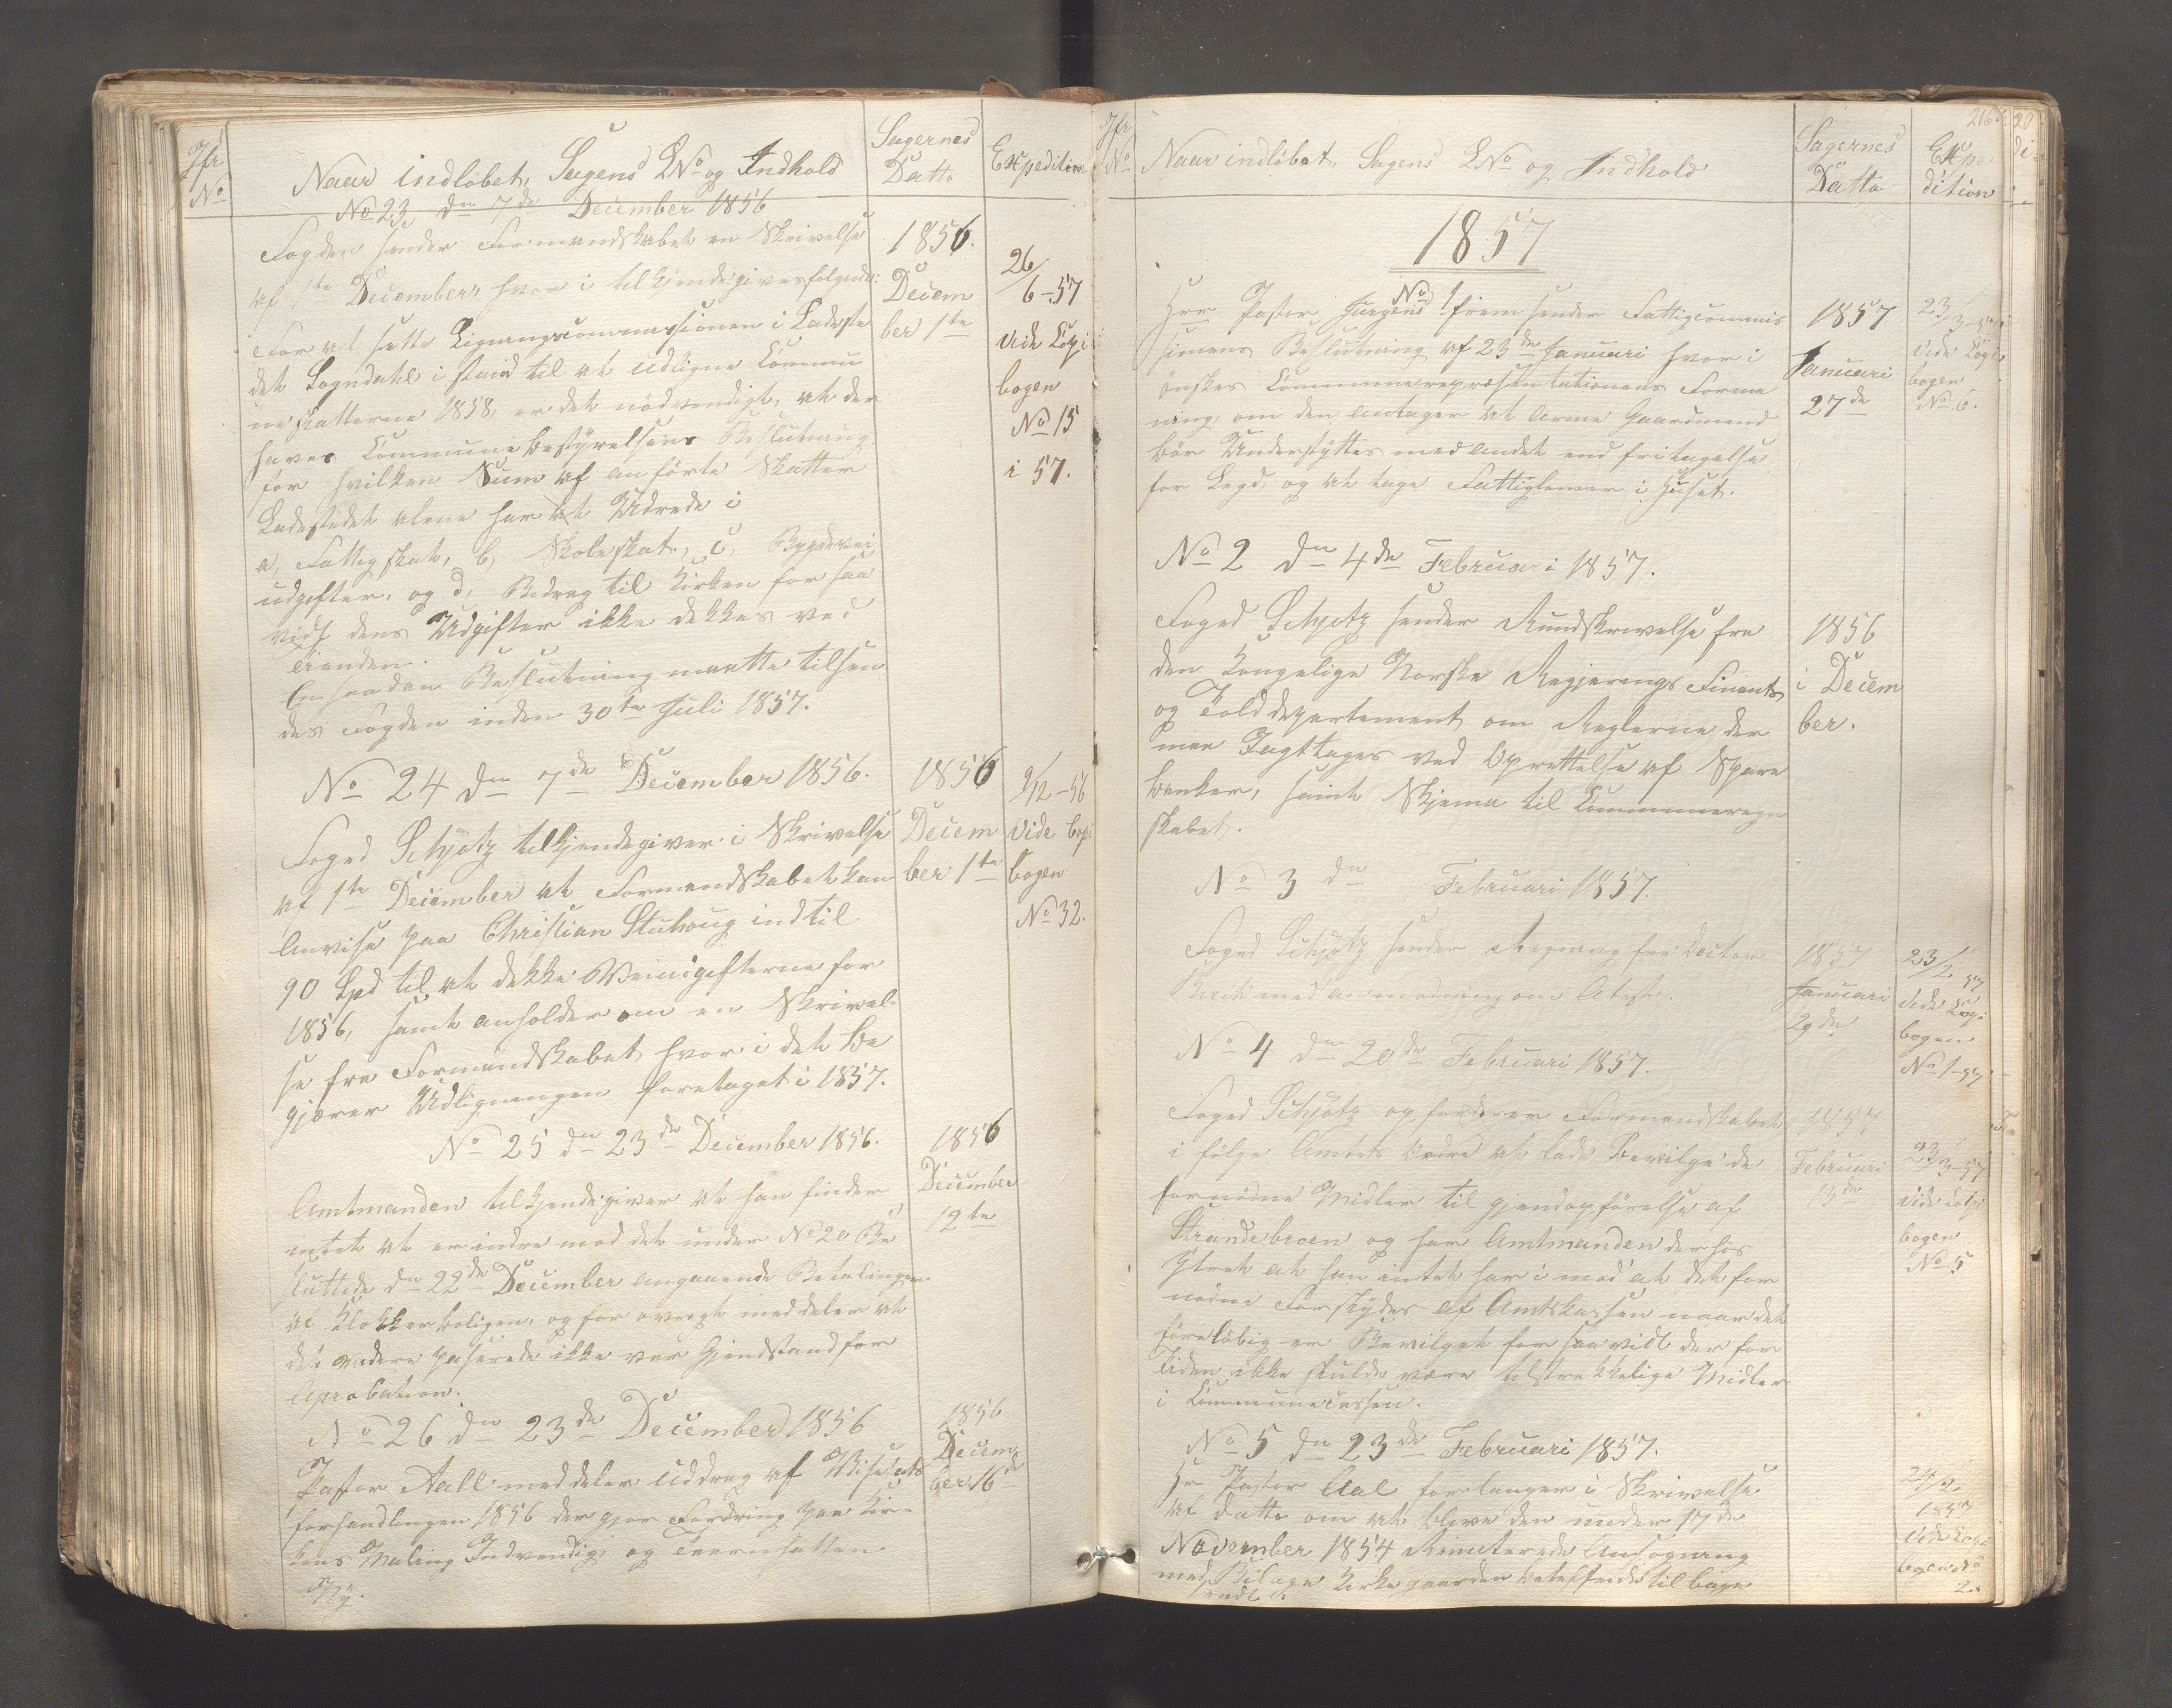 Jfr
No
Naar indløbet, Sagens LNo og Indhold
Sagernes
Datto
Expedition
No 23 dn 7de December 1856
Fogden sender Formandskabet en Skrivelse
af 1te December, hvor i tilkjendegives følgende:
For at sætte Ligningscommissionen i Ladeste
det Sogndahl i stand til at udligne Commu
neskatterne 1858, er det nødvendigt, at der
haves Communebestyrelsens Beslutning
for hvilken Sum af anførte Skatter
Ladestedet alene har at Udrede i
a, Fattigskat, b, Skoleskat, c, Bygdevei
udgifter, og d, Bidrag til Kirken for saa
vidt dens Udgifter ikke dekkes ved
Tienden.
En saadan Beslutning maatte tilsen
des Fogden inden 30te Juli 1857.
1856.
Decem
ber 1te
26/
6-57
vide Copi
bogen
No 15
i 57.
No 24 dn 7de December 1856.
Foged Schjøtz tilkjendegiver i Skrivelse
af 1te December at Formandskabet kan
Anvise paa Christian Stuhoug indtil
90 Spd til at dekke Veiudgifterne for
1856, samt anholder om en Skrivel-
se fra Formandskabet hvor i det be
gjærer Udligningen foretaget i 1857.
1856
Decem
ber 1te
9/12-56
Vide Copi
bogen
No 32.
No 25 dn 23de December 1856.
Amtmanden tilkjendegiver at han finder
intet at erindre mod det under No 20 Be
sluttede dn 22de December angaaende Betalingen
af Klokkerboligen, og for øvrigt meddeler at
det videre paserede ikke var Gjendstand for
Aprobation.
1856
December
12te
No 26 dn 23de December 1856
Pastor Aall meddeler Uddrag af Visitats
forhandlingen 1856 der gjør Fordring paa Kir-
kens Maling Indvendig og Taarnhatten
Ny.
1856
Decem
ber 16de
216.
Jfr
No
Naar indløbet, Sagens LNo og Indhold
Sagernes
Datto
Expe
dition
1857
No 1
Hrr Pastor Jürgens fremsender Fattigcommis
sionens Beslutning af 23de Januari hvor i
ønskes Communerepræsentationens Forme
ning om den antager at Arme Gaardmænd
bør Understyttes med andet end fritagelse
for Legd, og at tage Fattiglemer i Huset.
1857
Januari
27de
23/3-57
vide Copi
bogen
No 6.
No 2 dn 4de Februari 1857.
Foged Schjøtz sender Rundskrivelse fra
den Kongelige Norske Regjerings Finants
og Tolddepartement om Reglerne der
maa Iagttages ved Oprettelse af Spare
banker, samt Skjema til Communeregn
skabet.
1856
i Decem
ber.
No 3 dn Februari 1857.
Foged Schjøtz sender Regning fra Doctor
med anmodning om Atest.
1857
Januari
29de
23/2 57
vide Copi
bogen
No 1-57
No 4 dn 20de Februari 1857.
Foged Schjøtz opfordrer Formandskabet
i følge Amtets Ordre at lade Bevilge de
fornødne Midler til gjendopførelse af
Strandebroen og har Amtmanden derhos
Ytret at han intet har i mod at det for
nødne Forskydes af Amtskassen naar det
foreløbig er Bevilget for saavidt der for
Tiden ikke skulde være tilstrekkelige Midler
i Communecassen.
1857
Februari
13de
23/3-57
vide Copi
bogen
No 5
No 5 dn 23de Februari 1857.
Hr Pastor Aal forlanger i Skrivelse
af datto om at blive den under 17de
November 1854 Ansøgning
med Bilage Kirkegaarden betreffende tilbage
sendt
24/2
1857
Vide Copi
bogen No
2.